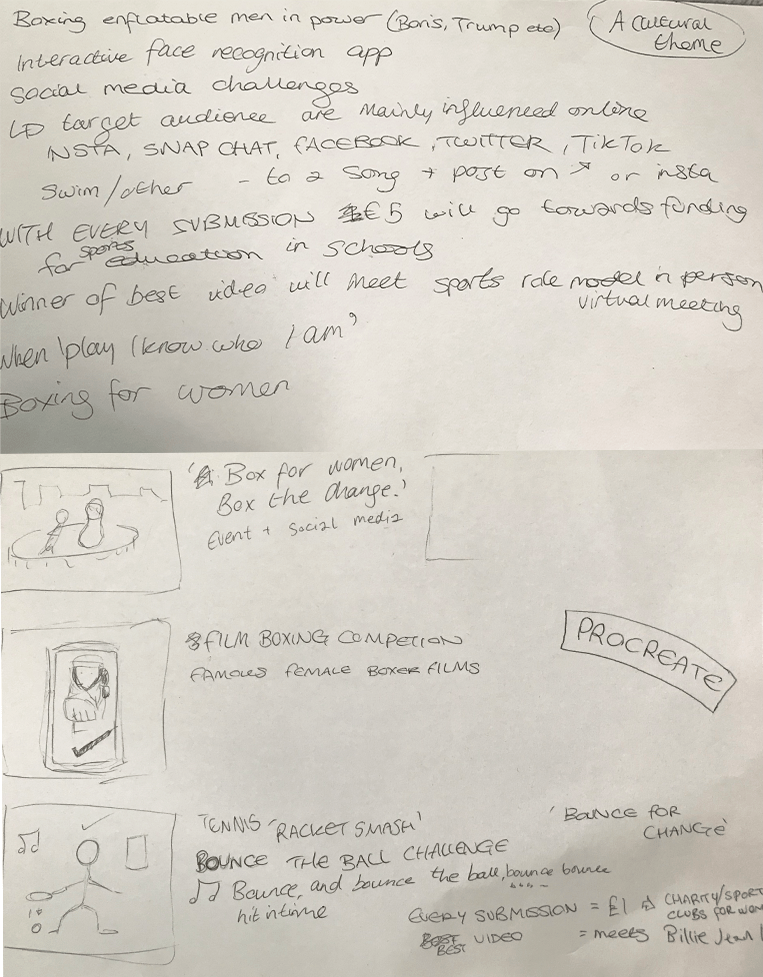 Boxing enflatable men in power (Boris, Trump etc)
A cultural
theme
Interactive face recognition app
Social media challenges
target audience are mainly influenced online
INSTA, SNAP CHAT, FACEBOOK, TWITTER, TikTok
Swim/other - to a song + post on or insta
WITH EVERY SUBMISSION £5 will go towards funding
for sports education in schools
Winner of best video will meet sports role model in person
virtual meeting
When 'play I know who I am'
Boxing for women
'Box for women,
Box the change.'
Event + social media
FILM BOXING COMPETION
FAMOUS FEMALE BOXER FILMS
PROCREATE
TENNIS 'RACKET SMASH'
'BOUNCE FOR
CHANGE'
BOUNCE THE BALL CHALLENGE
Bounce, and bounce the ball, bounce bounce
hit in time
EVERY SUBMISSION = £1 CHARITY/SPORT
CLUBS FOR WOM
BEST VIDEO = meets Billie Jean